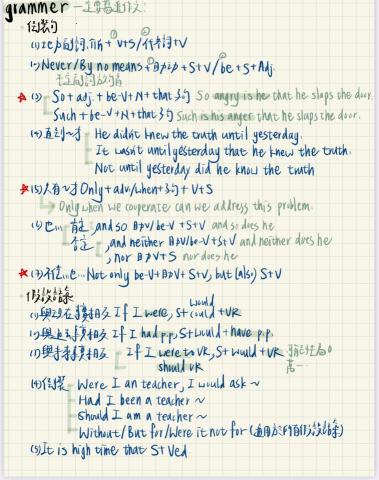 grammer 一定要會造作文:
·倒裝句
(1) 地方副詞.介係 + V+S/代名詞+V
(2) Never/By no means + 助動詞 + S+V / be+S+Adj.
否定副詞放句首
☆(3) So+adj.+be-V+N+that子句 So angry is he that he slaps the door.
Such+be-V+N+that子句 Such is his anger that he slaps the door.
(4) 直到~才 He didn't knew the truth until yesterday.
It wasn't until yesterday that he knew the truth.
Not until yesterday did he know the truth
☆(5) 只有~才 Only+adv/when+子句+V+S
Only when we cooperate can we address this problem.
(6) 也... 肯定 ,and so 助V/be-V+S+V and so does he
否定 ,and neither 助V/be-V+S+V and neither does he
, nor 助V+S nor does he
☆(7) 不僅...也 Not only be-V+助V+S+V, but (also) S+V
·假設語氣
(1) 與現在事實相反 If I were, S+would/could+VR
(2) 與過去事實相反 If I had p.p, S+would+have p.p.
(3) 與未來事實相反 If I were to VR, S+would+VR 可能性為0
should VR 萬一
(4) 倒裝 Were I an teacher, I would ask ~
Had I been a teacher ~
Should I am a teacher ~
Without/But for/Were it not for (適用於所有假設語氣)
(5) It is high time that S+Ved